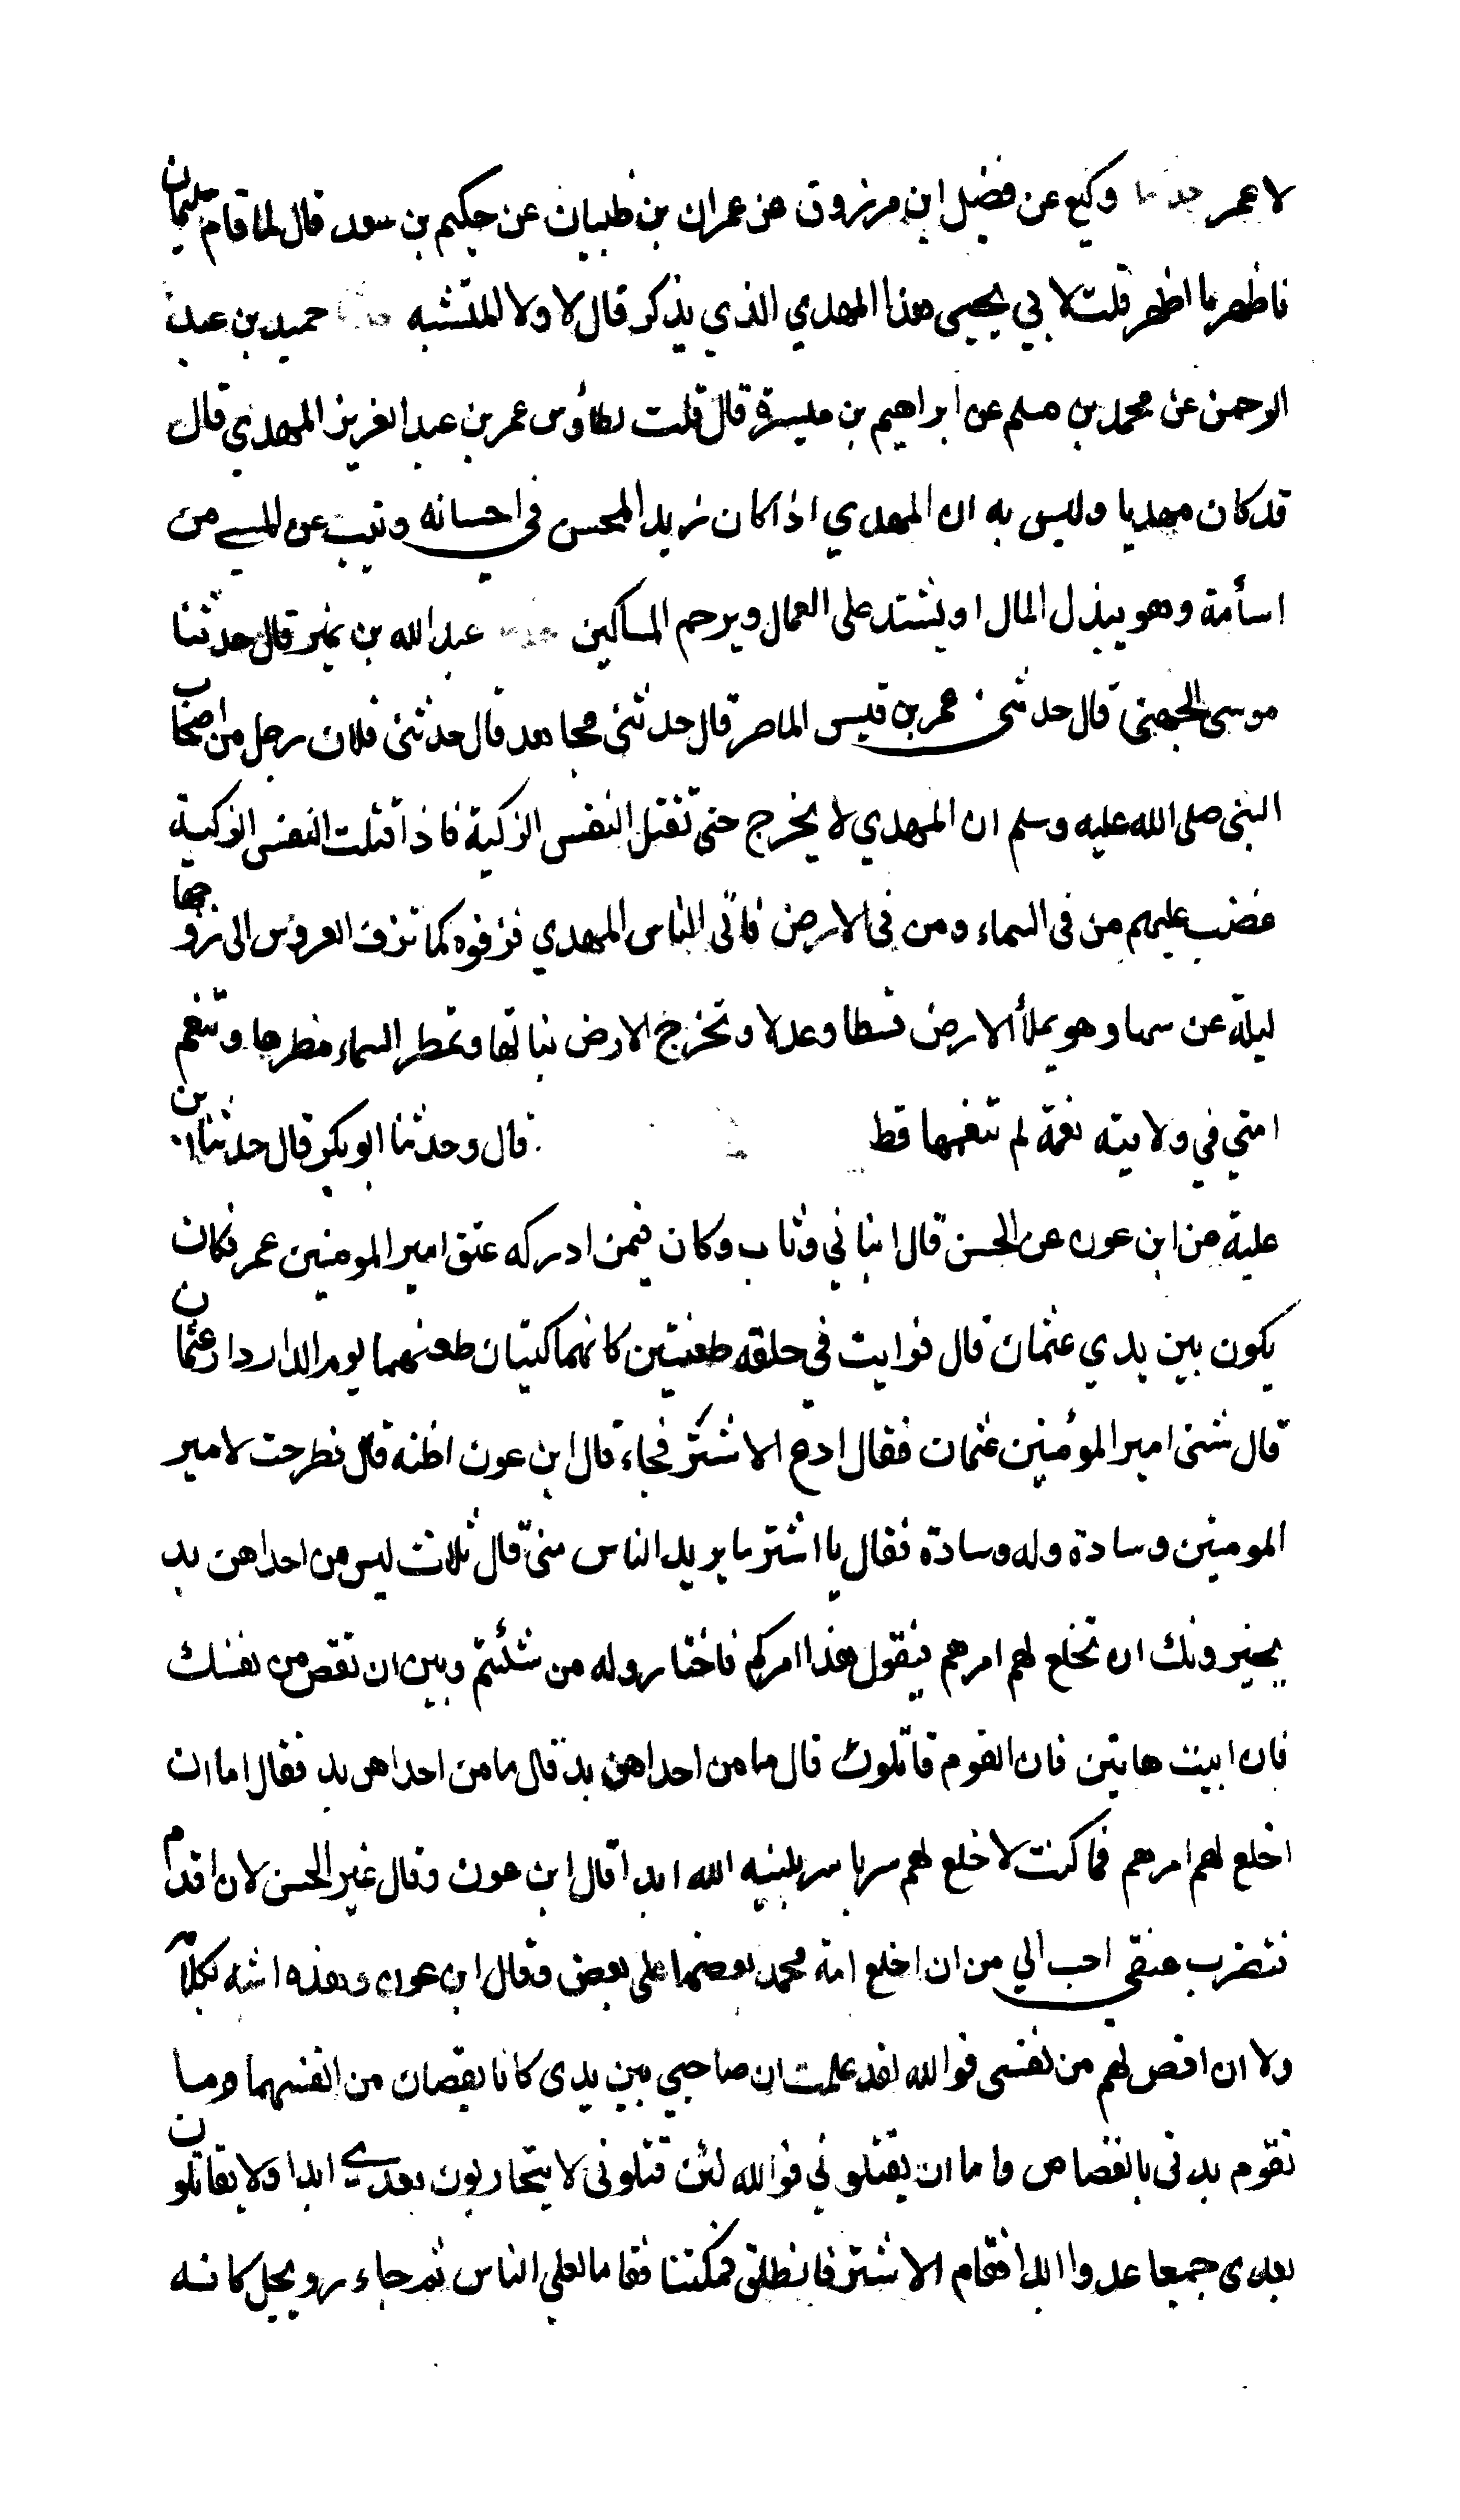 لا عمر حدثنا وكيع عن فضيل ابن مرزوق عن عمران بن ظبيان عن حكيم بن سعد قال لما قام سليمان
فاظهر ما اظهر قلت لابي يحيى هذا المهدي الذي يذكر قال لا ولا المتشبه حدثنا حميد بن عبد
الرحمن عن محمد بن مسلم عن ابراهيم بن ميسرة قال قلت لطاؤس عمر بن عبد العزيز المهدي قال
قد كان مهديا وليس به ان المهدي اذا كان زيد المحسن في احسانه وتيب عن المسي من
اسأمة وهو يبذل المال او يشتد على العمال ويرحم المساكين حدثنا عبد الله بن نمير قال حدثنا
موسى الجهني قال حدثني عمر بن قيس الماصر قال حدثني مجاهد قال حدثني فلان رجل من اصحاب
النبي صلى الله عليه وسلم ان المهدي لا يخرج حتى تقتل النفس الزكية فاذا قتلت النفس الزكية
غضب عليهم من في السماء ومن في الارض فاتى الناس المهدي فزفوه كما تزف العروس الى زوجها
ليلة عن سها وهو يملأ الارض قسطا وعدلا وتخرج الارض نباتها وتمطر السماء مطرها وتنعم
امتي في ولايته نعمة لم تنعمها قط قال وحدثنا ابو بكر قال حدثنا ابن
علية عن ابن عون عن الحسن قال انباني وثاب وكان فيمن ادركه عتق امير المومنين عمر فكان
يكون بين يدي عثمان قال فرايت في حلقه طعنتين كانهما كيتان طعنهما يوم الدار دار عثمان
قال بعثني امير المؤمنين عثمان فقال ادع الاشتر فجاء قال ابن عون اظنه قال فطرحت لامير
المومنين وسادة وله وسادة فقال يا اشتر ما يريد الناس مني قال ثلاث ليس من احداهن بد
يخيرونك ان تخلع لهم امرهم فيقول هذا امركم فاختاروا له من شئتم وبين ان تقص من نفسك
فان ابيت هاتين فان القوم قاتلوك قال ما من احداهن بد قال ما من احداهن بد فقال اما ان
اخلع لهم امرهم فما كنت لاخلع لهم سربا سربلنيه الله ابدا قال ابن عون وقال غير الحسن لان اقدم
فتضرب عنقي احب الي من ان اخلع امة محمد بعضها على بعض وقال ابن عون وهذه اشبه بكلام
ولا ان اقص لهم من نفسي فوالله لقد علمت ان صاحبي بين يدي كانا يقصان من انفسهما وما
نقوم بدني بالقصاص واما ان يقتلوني فوالله لئن قتلوني لا يتحاربون بعدي ابدا ولا يقاتلون
بعدي جميعا عدوا ابدا فقام الاشتر فانطلق فمكثنا فقلنا لعلي الناس ثم جاء رويجل كانه